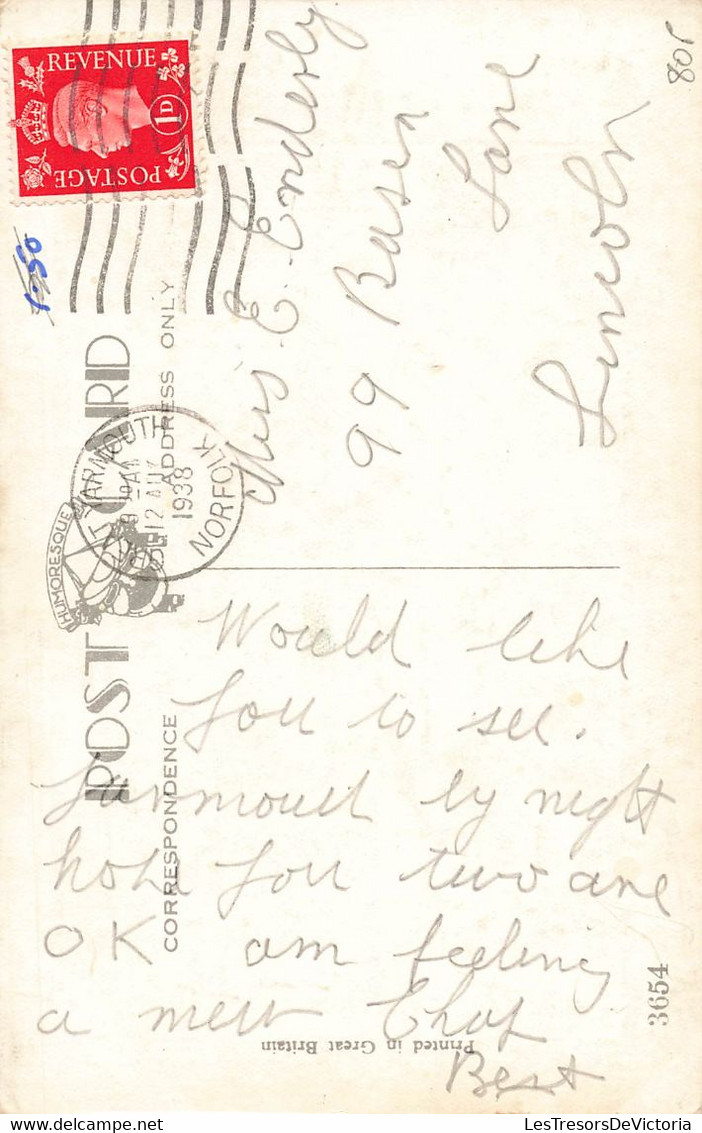 REVENUE
1D
POSTAGE
1.50
POST CARD
HUMORESQUE
CORRESPONDENCE
ADDRESS ONLY
YARMOUTH
12 AU
1938
NORFOLK
Miss E. Enderly
99 Basen
Lane
Lincoln
Would like
you to see.
Yarmouth by night
hope you two are
OK am feeling
a new Chap
Best
Printed in Great Britain
3654
80r
LesTresorsDeVictoria.com